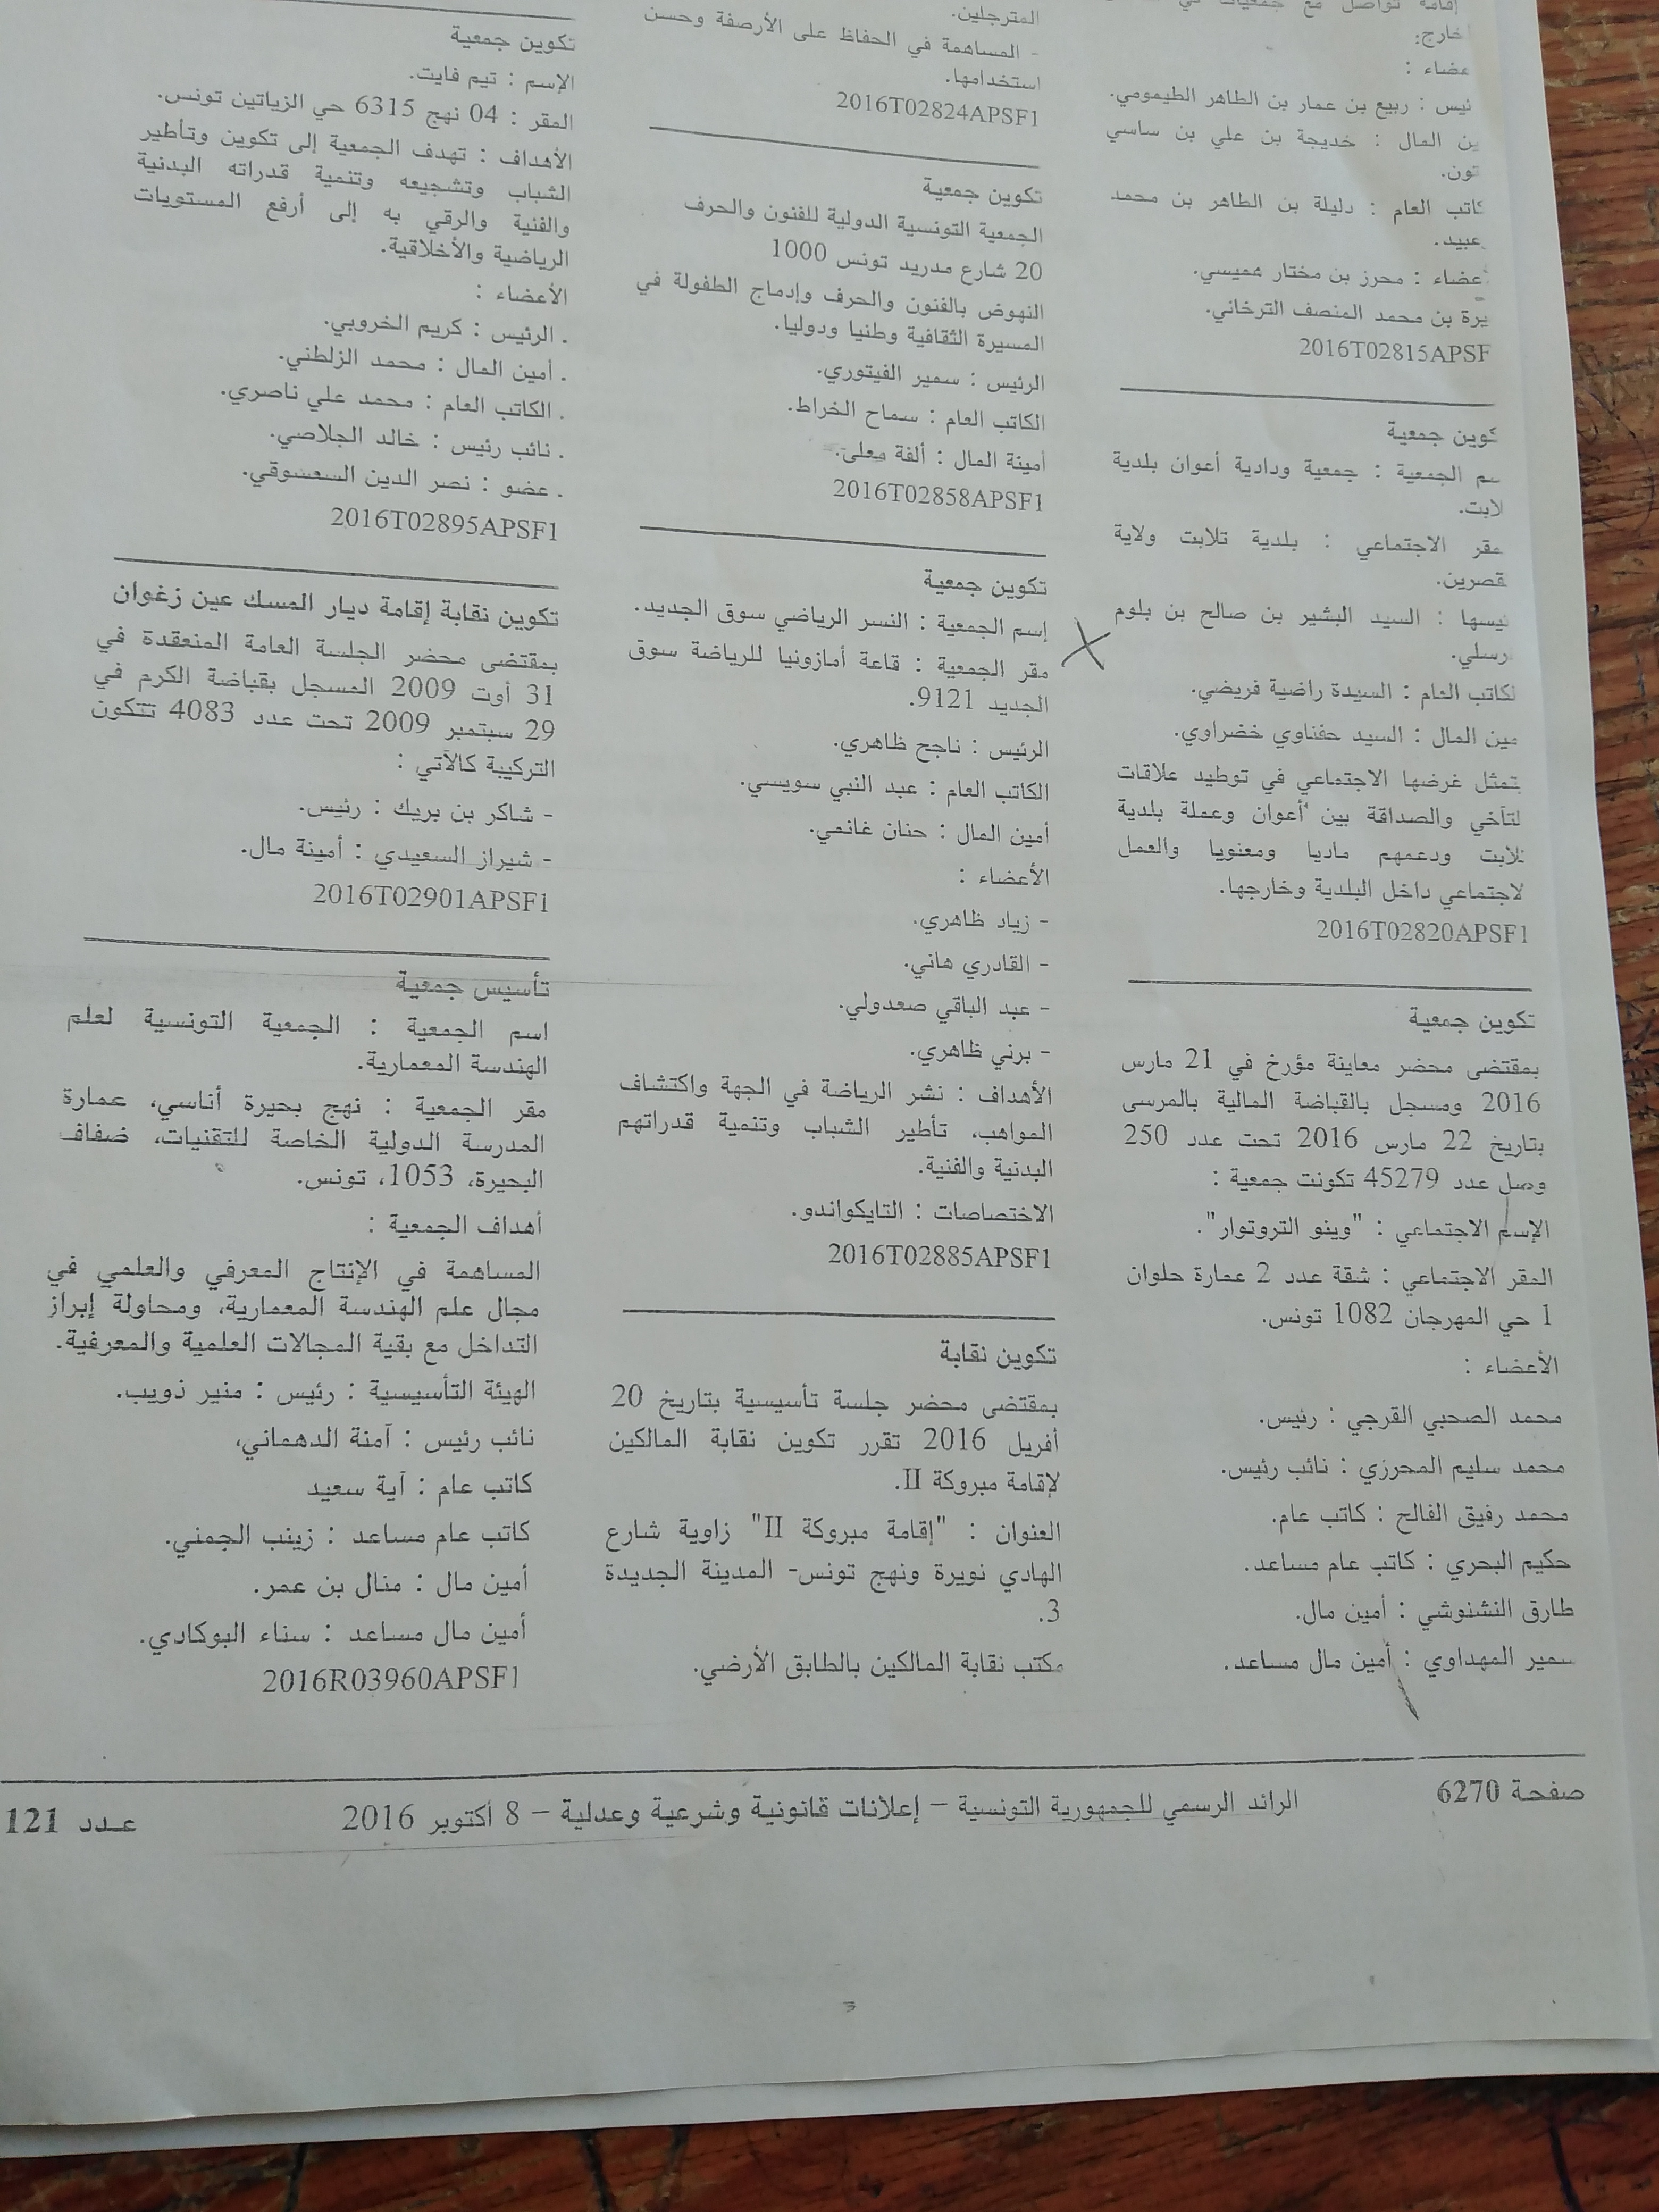 إقامة تواصل مع جمعيات في
خارج:
عضاء :
ئيس : ربيع بن عمار بن الطاهر الطيمومي.
ين المال : خديجة بن علي بن ساسي
تون.
كاتب العام : دليلة بن الطاهر بن محمد
عبيد.
عضاء : محرز بن مختار هميسي.
يرة بن محمد المنصف الترخاني.
2016T02815APSF
كوين جمعية
سم الجمعية : جمعية ودادية أعوان بلدية
لابت.
مقر الاجتماعي : بلدية تلابت ولاية
قصرين.
ئيسها : السيد البشير بن صالح بن بلوم
رسلي.
لكاتب العام : السيدة راضية فريضي.
مين المال : السيد حفناوي خضراوي.
تتمثل غرضها الاجتماعي في توطيد علاقات
لتآخي والصداقة بين أعوان وعملة بلدية
تلابت ودعمهم ماديا ومعنويا والعمل
لاجتماعي داخل البلدية وخارجها.
2016T02820APSF1
تكوين جمعية
بمقتضى محضر معاينة مؤرخ في 21 مارس
2016 ومسجل بالقباضة المالية بالمرسى
بتاريخ 22 مارس 2016 تحت عدد 250
وصل عدد 45279 تكونت جمعية :
الإسم الاجتماعي : "وينو التروتوار".
المقر الاجتماعي : شقة عدد 2 عمارة حلوان
1 حي المهرجان 1082 تونس.
الأعضاء :
محمد الصحبي القرجي : رئيس.
محمد سليم المحرزي : نائب رئيس.
محمد رفيق الفالح : كاتب عام.
حكيم البحري : كاتب عام مساعد.
طارق النشنوشي : أمين مال.
سمير المهداوي : أمين مال مساعد.
المترجلين.
- المساهمة في الحفاظ على الأرصفة وحسن
استخدامها.
2016T02824APSF1
تكوين جمعية
الجمعية التونسية الدولية للفنون والحرف
20 شارع مدريد تونس 1000
النهوض بالفنون والحرف وإدماج الطفولة في
المسيرة الثقافية وطنيا ودوليا.
الرئيس : سمير الفيتوري.
الكاتب العام : سماح الخراط.
أمينة المال : ألفة معلى.
2016T02858APSF1
تكوين جمعية
إسم الجمعية : النسر الرياضي سوق الجديد.
مقر الجمعية : قاعة أمازونيا للرياضة سوق
الجديد 9121.
الرئيس : ناجح ظاهري.
الكاتب العام : عبد النبي سويسي.
أمين المال : حنان غانمي.
الأعضاء :
- زياد ظاهري.
- القادري هاني.
- عبد الباقي صعدولي.
- برني ظاهري.
الأهداف : نشر الرياضة في الجهة واكتشاف
المواهب، تأطير الشباب وتنمية قدراتهم
البدنية والفنية.
الاختصاصات : التايكواندو.
2016T02885APSF1
تكوين نقابة
بمقتضى محضر جلسة تأسيسية بتاريخ 20
أفريل 2016 تقرر تكوين نقابة المالكين
لإقامة مبروكة II.
العنوان : "إقامة مبروكة II" زاوية شارع
الهادي نويرة ونهج تونس- المدينة الجديدة
3.
مكتب نقابة المالكين بالطابق الأرضي.
تكوين جمعية
الإسم : تيم فايت.
المقر : 04 نهج 6315 حي الزياتين تونس.
الأهداف : تهدف الجمعية إلى تكوين وتأطير
الشباب وتشجيعه وتنمية قدراته البدنية
والفنية والرقي به إلى أرفع المستويات
الرياضية والأخلاقية.
الأعضاء :
. الرئيس : كريم الخروبي.
. أمين المال : محمد الزلطني.
. الكاتب العام : محمد علي ناصري.
. نائب رئيس : خالد الجلاصي.
. عضو : نصر الدين السعسوقي.
2016T02895APSF1
تكوين نقابة إقامة ديار المسك عين زغوان
بمقتضى محضر الجلسة العامة المنعقدة في
31 أوت 2009 المسجل بقباضة الكرم في
29 سبتمبر 2009 تحت عدد 4083 تتكون
التركيبة كالآتي :
- شاكر بن بريك : رئيس.
- شيراز السعيدي : أمينة مال.
2016T02901APSF1
تأسيس جمعية
اسم الجمعية : الجمعية التونسية لعلم
الهندسة المعمارية.
مقر الجمعية : نهج بحيرة أناسي، عمارة
المدرسة الدولية الخاصة للتقنيات، ضفاف
البحيرة، 1053، تونس.
أهداف الجمعية :
المساهمة في الإنتاج المعرفي والعلمي في
مجال علم الهندسة المعمارية، ومحاولة إبراز
التداخل مع بقية المجالات العلمية والمعرفية.
الهيئة التأسيسية : رئيس : منير ذويب.
نائب رئيس : آمنة الدهماني،
كاتب عام : آية سعيد
كاتب عام مساعد : زينب الجمني.
أمين مال : منال بن عمر.
أمين مال مساعد : سناء البوكادي.
2016R03960APSF1
صفحة 6270
الرائد الرسمي للجمهورية التونسية – إعلانات قانونية وشرعية وعدلية – 8 أكتوبر 2016
عـدد 121